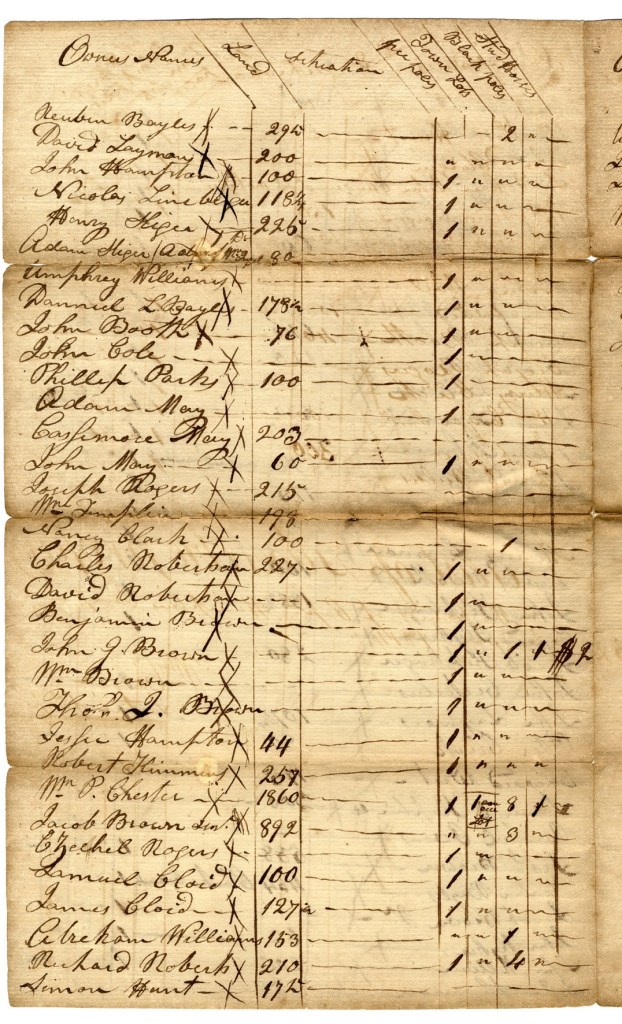 Owners Names Land situation free poles Town Lots Black poles Stud Horses
Reuben Bayles X - - 295 - 2 "
David Layman X 200 " " " "
John Hampton X - 100 1 " " "
Nicolas 118 1/2 1 " " "
Henry Higer X 225 1 " " "
Adam Higer 80
Umphrey Williams X - 1 " " "
Danniel L Bayles - 178 1/2 1 " " "
John Booth X - 76 1 " "
John Cole - - X - 1
Phillip Parks X 100 1 " " "
Adam May X 1
Cassimore May X 203
John May - X 60 1 " " "
Joseph Rogers X - 215
Wm 198
Nancy Clark X - 100 1
Charles Roberham 227 1 " "
David Roberham 1 "
Benjamin Brown 1
John G. Brown X 1 " 1 1 $2
Wm Brown X 1 " " "
Thos. J. Brown 1 " " "
Jesse Hampton X 44 1 " " "
Robert X 257 1 " " "
Wm P. Chester - X 1860 1 1 8 1
Jacob Brown X 892 " " 3
Ezechel Rogers X - 1 "
Samuel Cloid X 100 1 " " "
James Cloid - X 127 1 " " "
Abreham Williams 153 " " 1
Richard Roberts X 210 1 " 4 "
Simon Hunt - X - 175